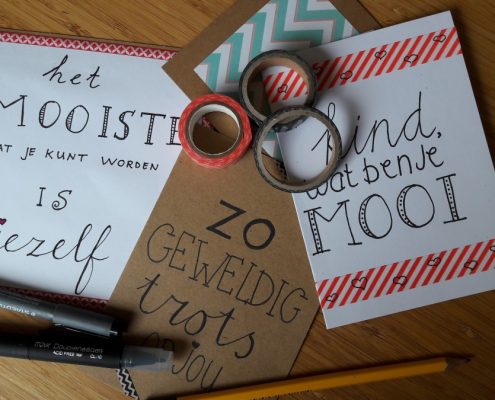 het
MOOISTE
AT JE KUNT WORDEN
IS
jezelf
ZO
GEWELDIG
trots
OP JOU
kind,
wat ben je
MOOI